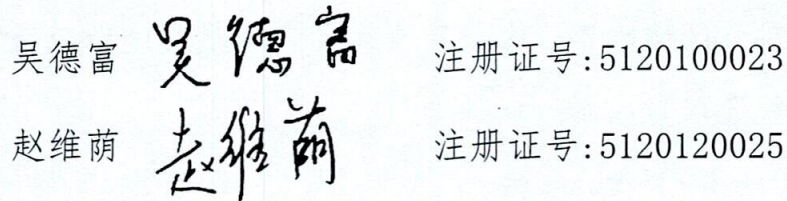 吴德富 吴德富 注册证号:5120100023
赵维荫 赵维荫 注册证号:5120120025